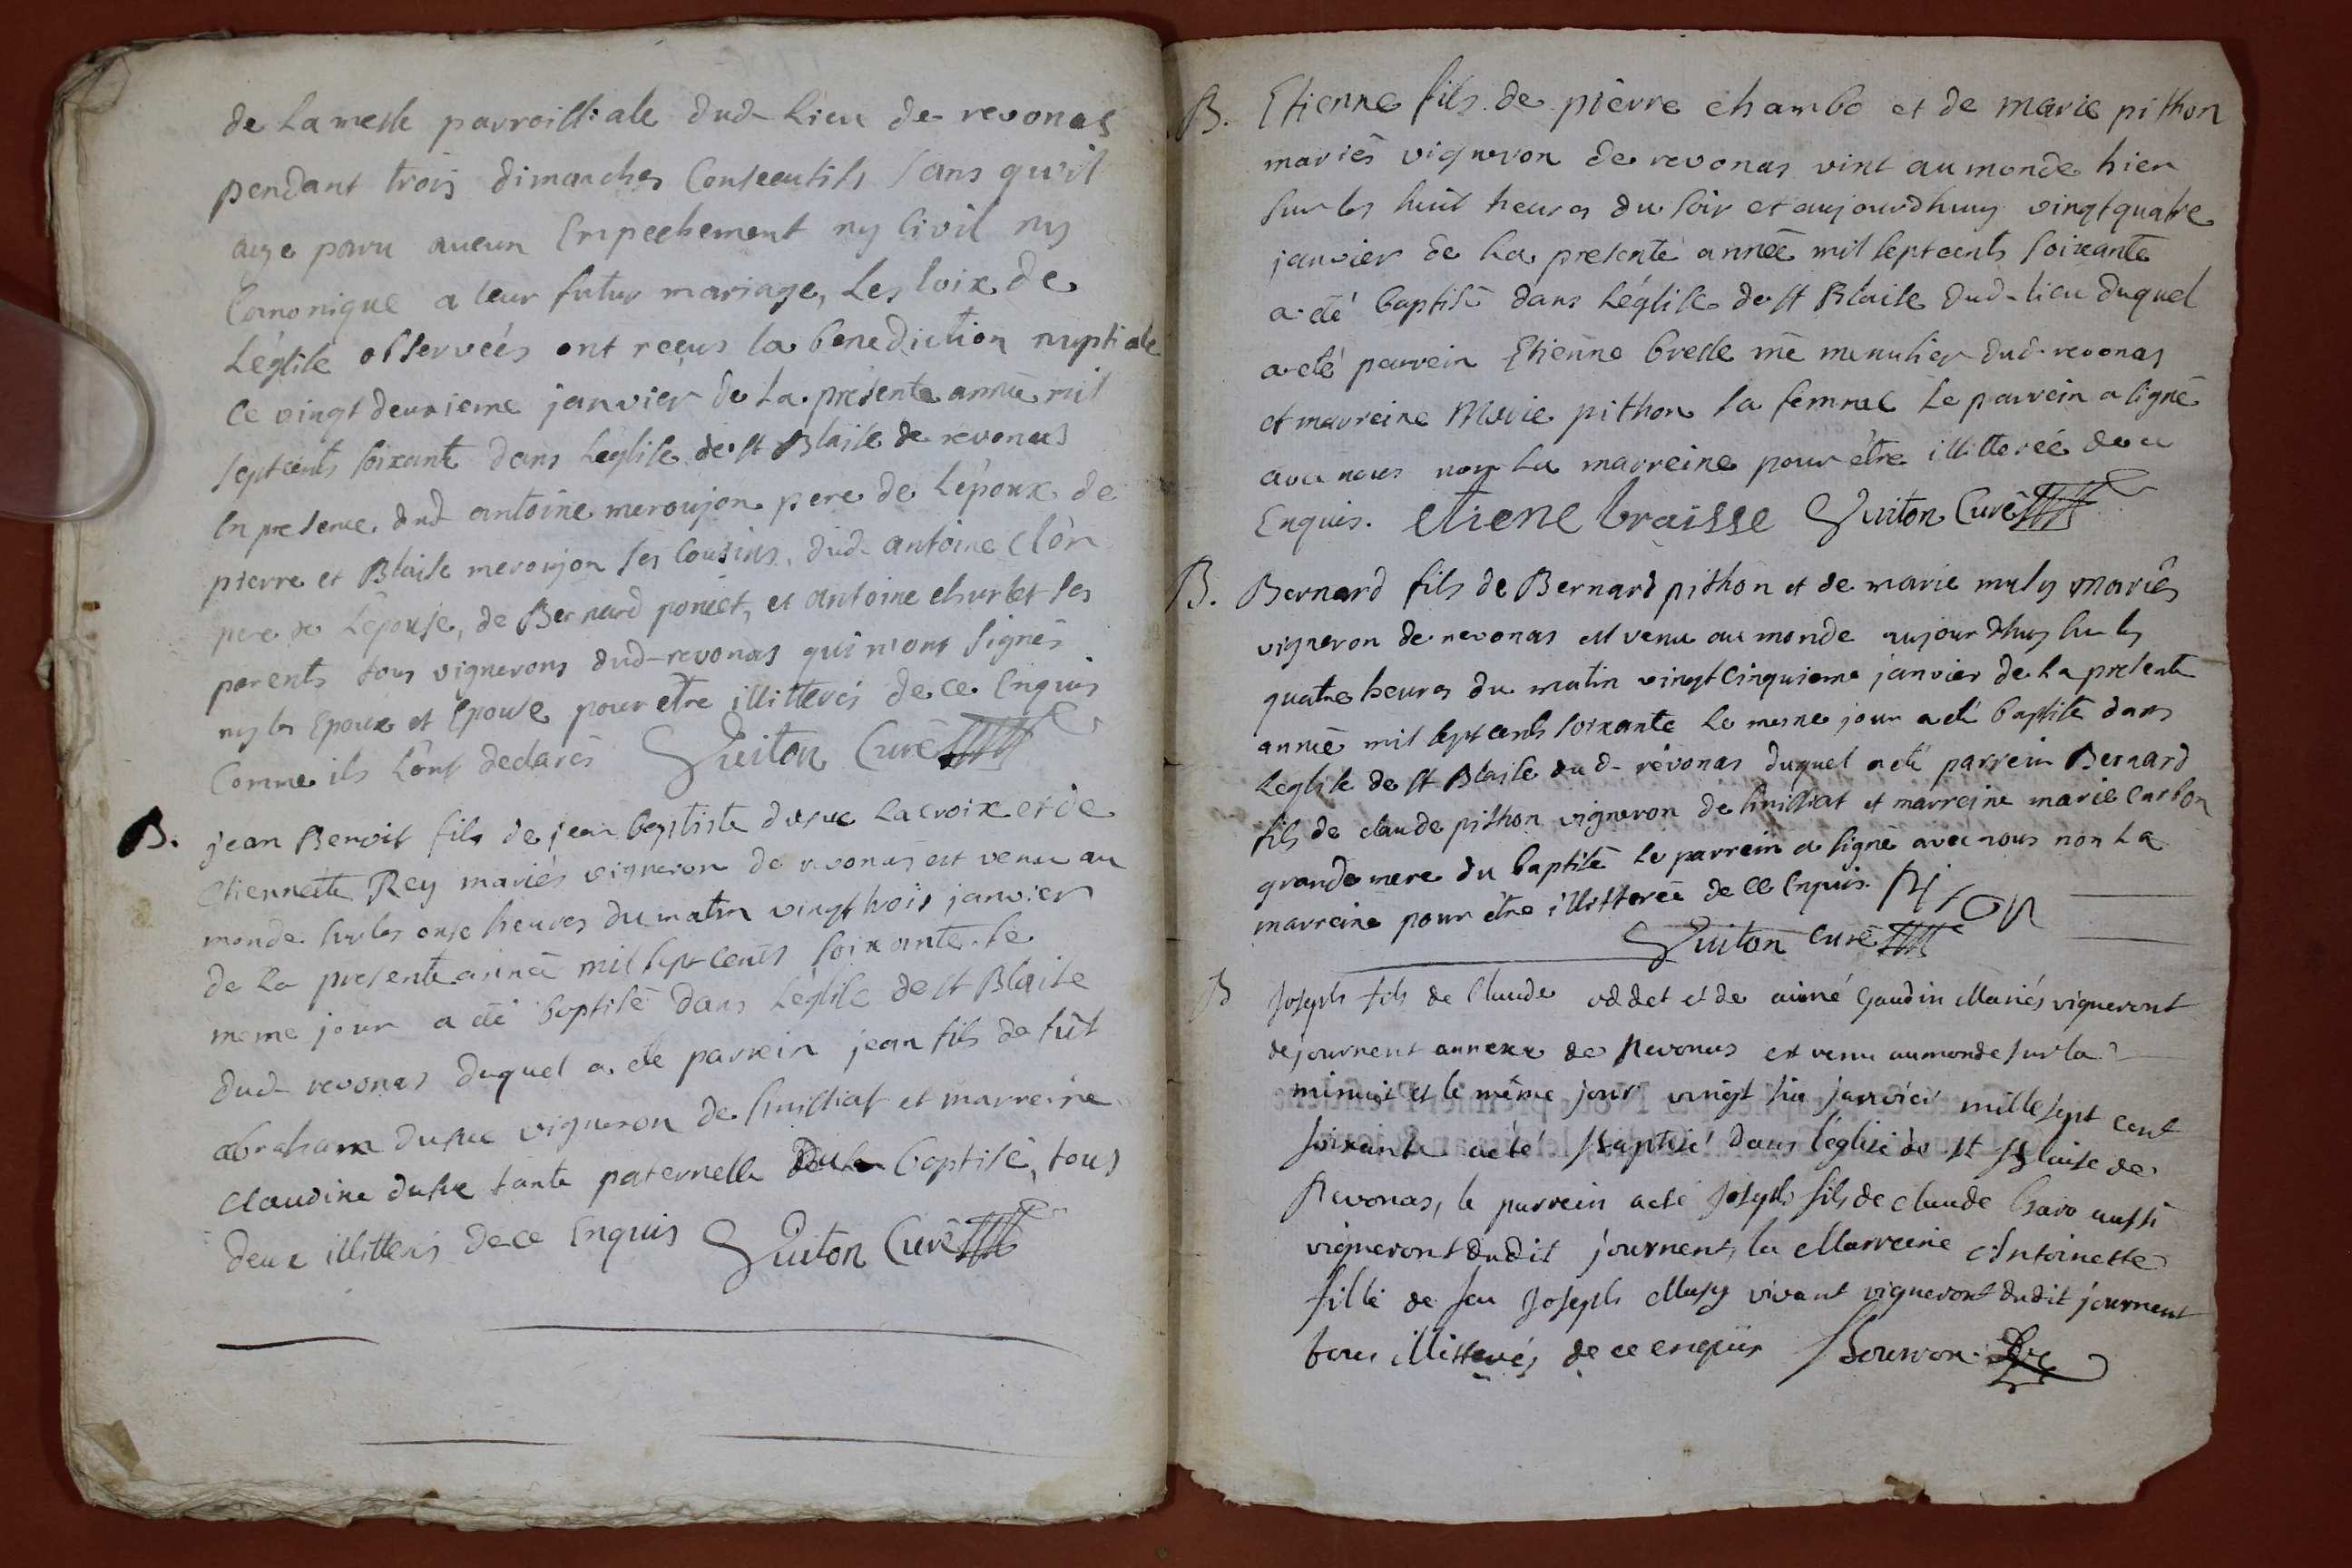 de la messe parroissiale dud lieu de revonas
pendant trois dimanches Consecutifs sans qu'il
aye paru aucun Empechement ny Civil ny
Canonique a leur futur mariage, Les loix de
L'église observées ont reçus la benediction nuptiale
le vingt deuxieme janvier de la présente année mil
septcents soixante dans Léglise de st Blaise de revonas
En presence dud antoine meroujon pere de L'époux de
pierre et Blaise meroujon ses Cousins, dud antoine
pere de L'épouse, de Bernard poncet, et antoine churlet ses
parents tous vignerons dud revonas qui n'ont signés
ny les Epoux et Epouse pour etre illitterés de ce Enquis
Comme ils l'ont declarés Guiton Curé
B. jean Benoit fils de jean baptiste dusuc Lacroix et de
Etiennette Rey mariés vigneron de revonas est venu au
monde sur les onse heures du matin vingt trois janvier
de la presente année mil sept cents soixante. le
meme jour a été baptisé dans L'église de st Blaise
dud revonas duquel a eté parrein jean fils de fût
abraham dusuc vigneron de Smissiat et marreine
Claudine dusuc tante paternelle baptisé, tous
deux illitterés de ce Enquis Guiton Curé
B. Etienne fils de pierre chambo et de marie pithon
mariés vigneron de revonas vint au monde hier
sur les huit heures du soir et aujourdhuy vingtquatre
janvier de la presente année mil septcents soixante
a été baptisé dans L'église de st Blaise dud lieu duquel
a été parrein Etienne bresse me menusier dud revonas
et marreine Marie pithon sa femme Le parrein a signé
avec nous non La marreine pour être illitterée de ce
Enquis. etiene braisse Guiton Curé
B. Bernard fils de Bernard pithon et de marie musy mariés
vigneron de revonas est venu au monde aujourdhuy sur les
quatre heures du matin vingtcinquieme janvier de La presente
année mil sept cents soixante Le mesme jour a été baptisé dans
Léglise de st Blaise dud revonas duquel a été parrein Bernard
fils de claude pithon vigneron de Smissiat et marreine marie carbon
grande mere du baptisé Le parrein a signé avec nous non La
marreine pour être illitterée de ce Enquis. piton
Guiton curé
B Joseph fils de Claude oddet et de aimé Gaudin Mariés vigneront
de journent annexe de Revonas est venu au monde sur la
minuit et le même jour vingt six janvier mille sept cent
soixante a été Baptisé dans l'église de st Blaise de
Revonas, le parrein a été Joseph fils de claude baro aussi
vigneront dudit journent, la Marreine Antoinette
fille de feu Joseph Musy vivant vigneront dudit journent
tous illitterés de ce enquis Bourron